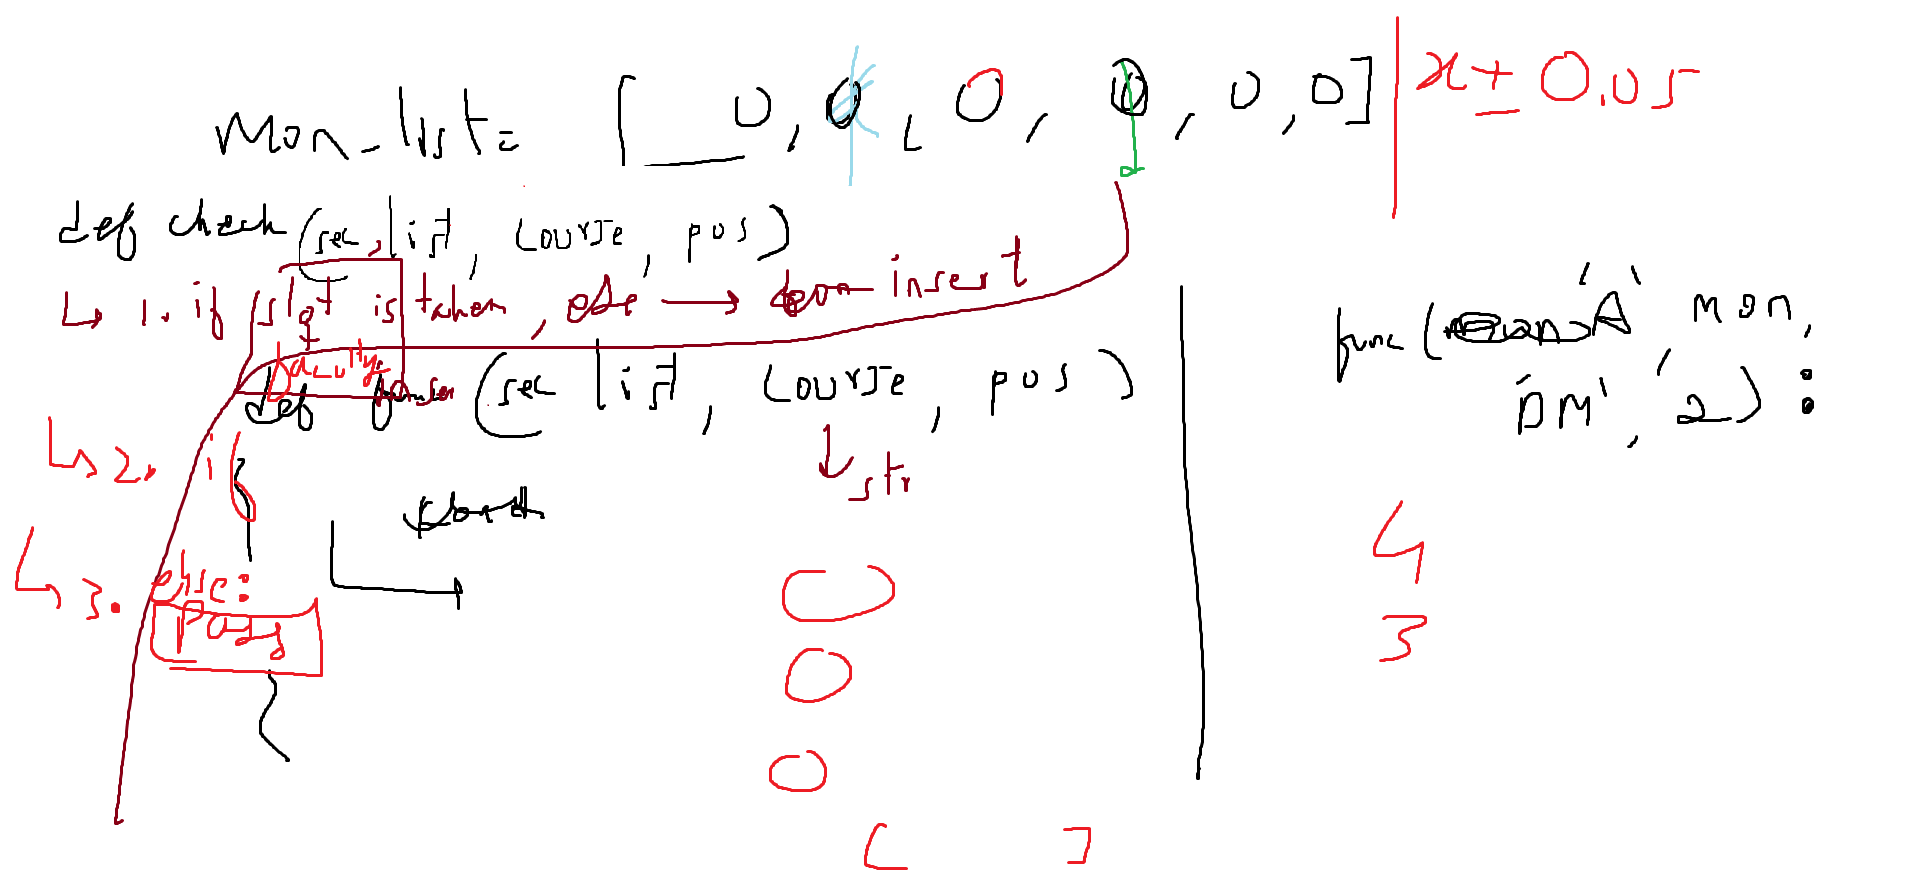 mon_list = [ 0, 0, 0, 0, 0, 0] x ± 0.05
def check (sec, list, course, pos)
↳ 1. if slot is taken, else → insert
faculty
def (sec list, course, pos)
↓ str
func ( 'A', mon,
'DM', 2) :
↳ 2. if
↳ 3. else:
pass
4
3
[ ]